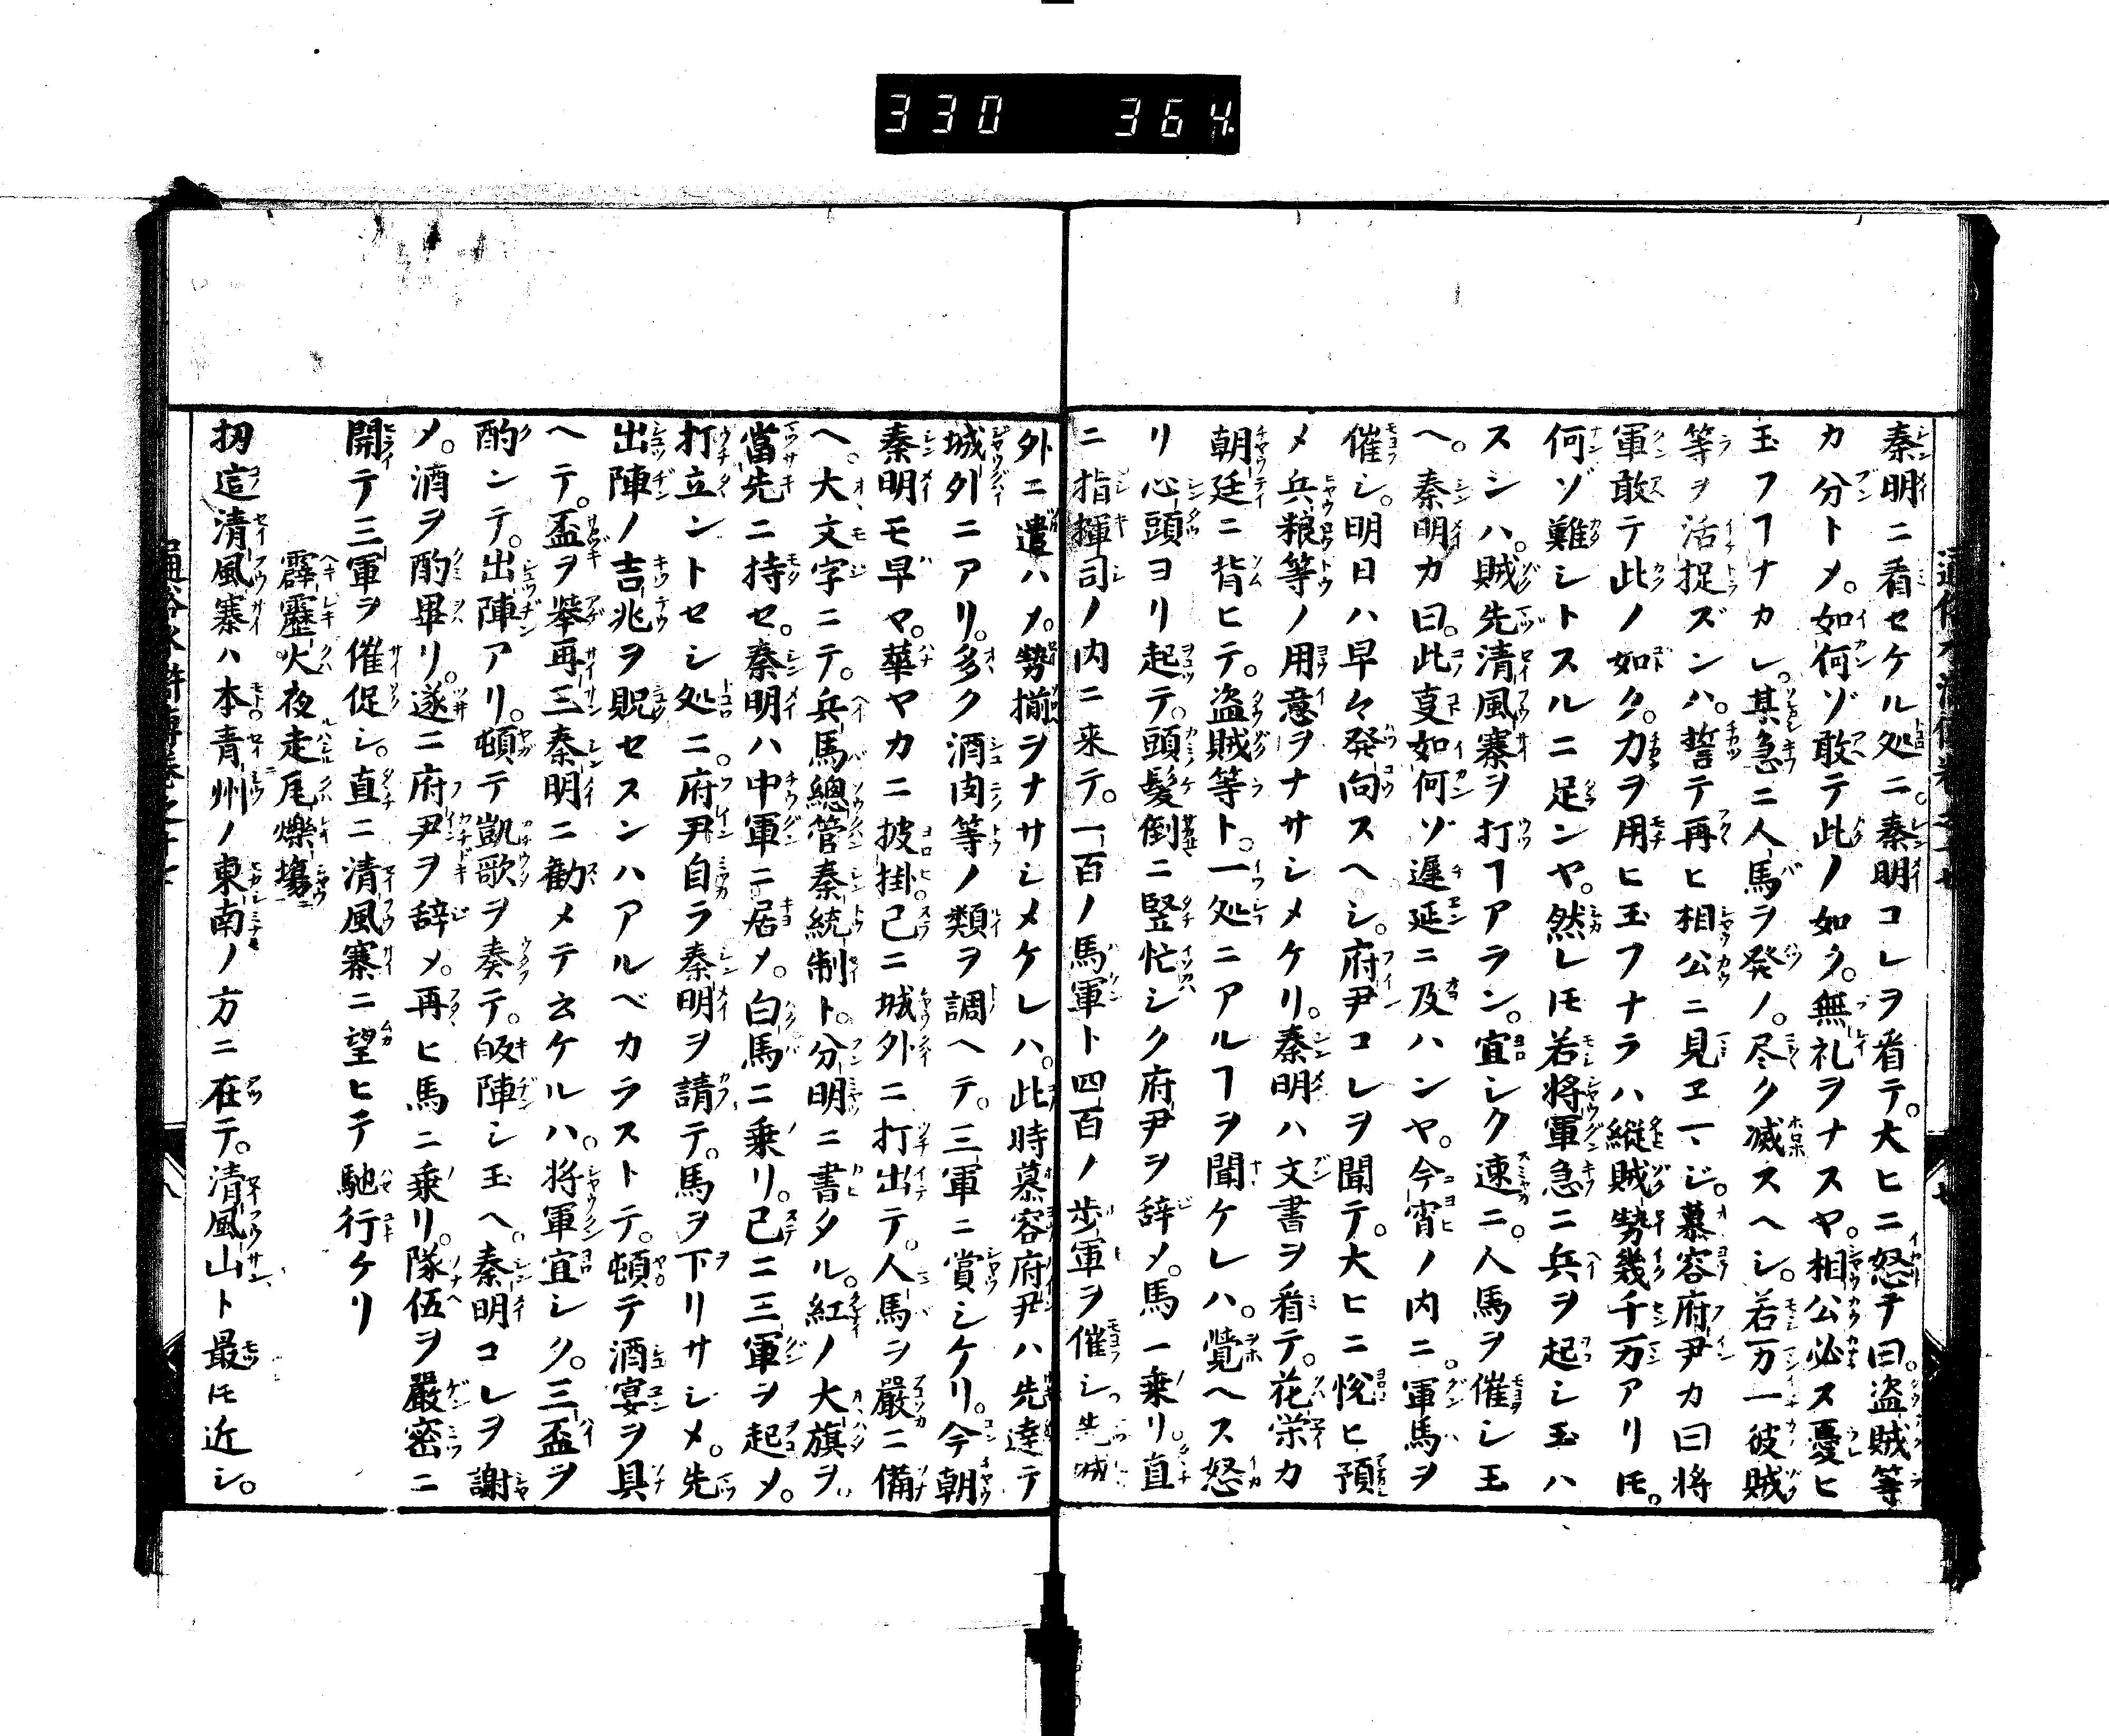 330 364
秦明ニ看セケル処ニ。秦明コレヲ看テ。大ヒニ怒テ曰。盗賊等
カ分トメ。如何ゾ敢テ此ノ如ク。無礼ヲナスヤ。相公必ス憂ヒ
玉フヿナカレ。某急ニ人馬ヲ発ノ。尽ク滅スヘシ。若万一彼賊
等ヲ活捉ズンハ。誓テ再ヒ相公ニ見ヱマジ。慕容府尹カ曰将
軍敢テ此ノ如ク。力ヲ用ヒ玉フナラハ縦賊勢幾千万アリ𪜈。
何ゾ難シトスルニ足ンヤ。然レ𪜈若将軍急ニ兵ヲ起シ玉ハ
スンハ。賊先清風寨ヲ打ヿアラン。宜シク速ニ。人馬ヲ催シ玉
ヘ。秦明カ曰。此㕝如何ゾ遅延ニ及ハンヤ。今宵ノ内ニ。軍馬ヲ
催シ。明日ハ早々発向スヘシ。府尹コレヲ聞テ。大ヒニ悦ヒ預
メ兵粮等ノ用意ヲナサシメケリ。秦明ハ文書ヲ看テ。花栄カ
朝廷ニ背ヒテ。盗賊等ト。一処ニアルヿヲ聞ケレハ。覚ヘス怒
リ心頭ヨリ起テ。頭髪倒ニ竪忙シク府尹ヲ辞メ。馬ニ乗リ。直
ニ指揮司ノ内ニ来テ。一百ノ馬軍ト四百ノ歩軍ヲ催シ先城
外ニ遣ハメ。勢揃ヲナサシメケレハ。此時慕容府尹ハ先達テ
城外ニアリ。多ク酒肉等ノ類ヲ調ヘテ。三軍ニ賞シケリ。今朝
秦明モ早マ。華ヤカニ披掛已ニ城外ニ打出テ。人馬ヲ嚴ニ備
ヘ。大文字ニテ。兵馬總管秦統制ト。分明ニ書タル。紅ノ大旗ヲ。
當先ニ持セ。秦明ハ中軍ニ居メ。白馬ニ乗リ。已ニ三軍ヲ起メ。
打立ントセシ処ニ。府尹自ラ秦明ヲ請テ。馬ヲ下リサシメ。先
出陣ノ吉兆ヲ祝セスンハアルベカラストテ。頓テ酒宴ヲ具
ヘテ。盃ヲ挙再三秦明ニ勧メテ云ケルハ。将軍宜シク。三盃ヲ
酌ンテ。出陣アリ。頓テ凱歌ヲ奏テ。皈陣シ玉ヘ。秦明コレヲ謝
メ。酒ヲ酌畢リ。遂ニ府尹ヲ辞メ。再ヒ馬ニ乗リ。隊伍ヲ嚴密ニ
開テ三軍ヲ催促シ。直ニ清風寨ニ望ヒテ馳行ケリ
霹靂火夜走尾爍塲
扨這清風寨ハ本青州ノ東南ノ方ニ在テ。清風山ト最𪜈近シ。